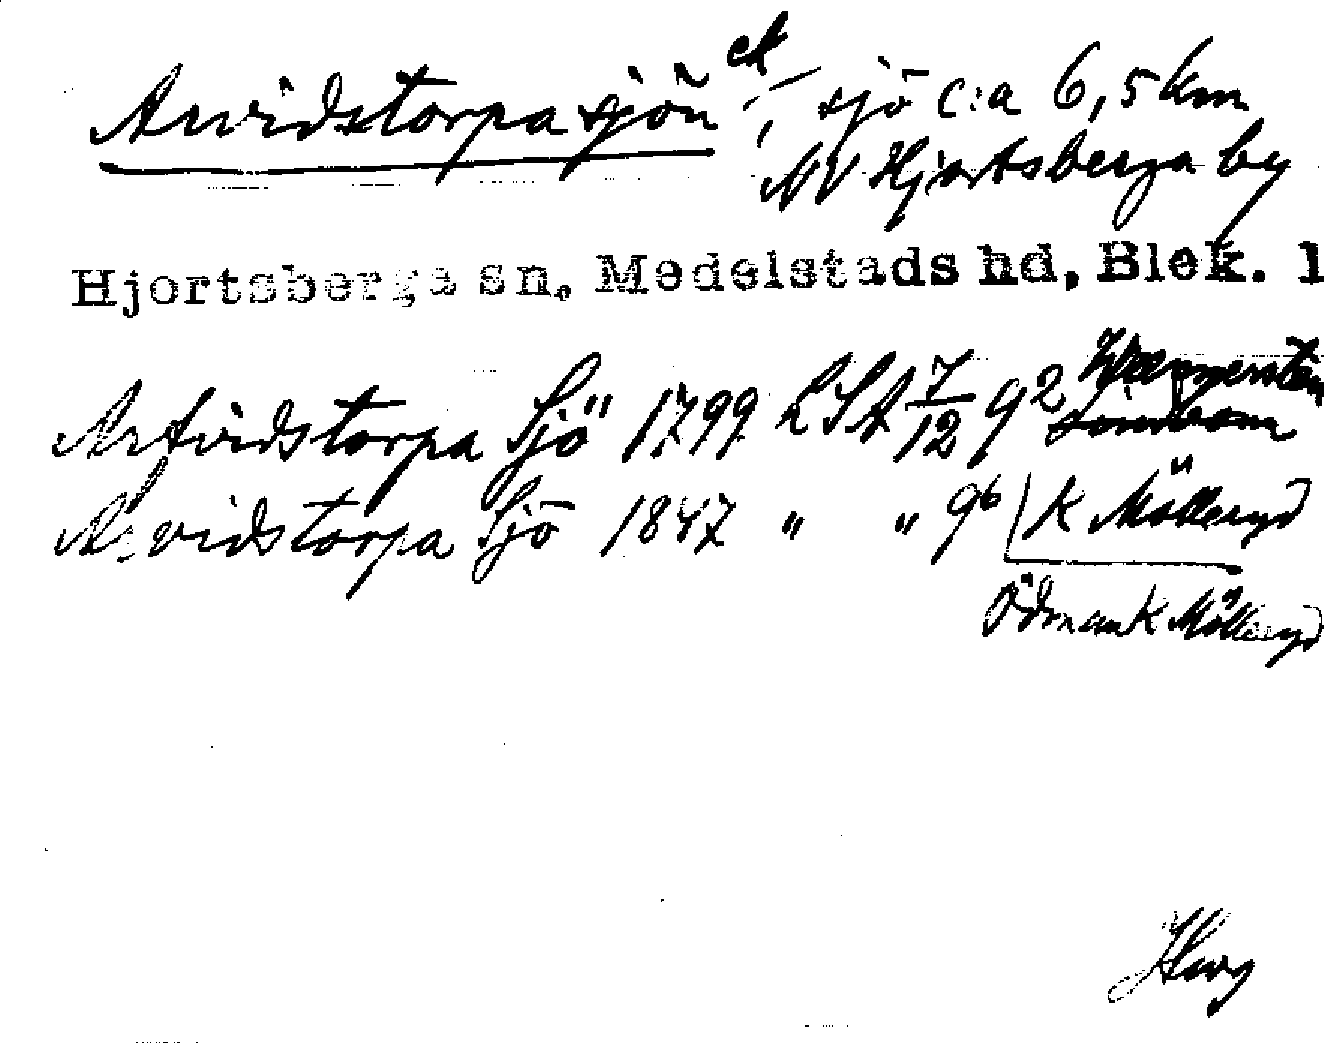 Arvidstorpasjön ek, sjö c:a 6,5 km
NV Hjortsberga by
Hjortsberga sn, Medelstads hd, Blek. l
Arfvidstorpa Sjö 1799 LSA 7/12 92
Arvidstorpa Sjö 1847 " " 96 K Mölleryd
Ödman K Mölleryd